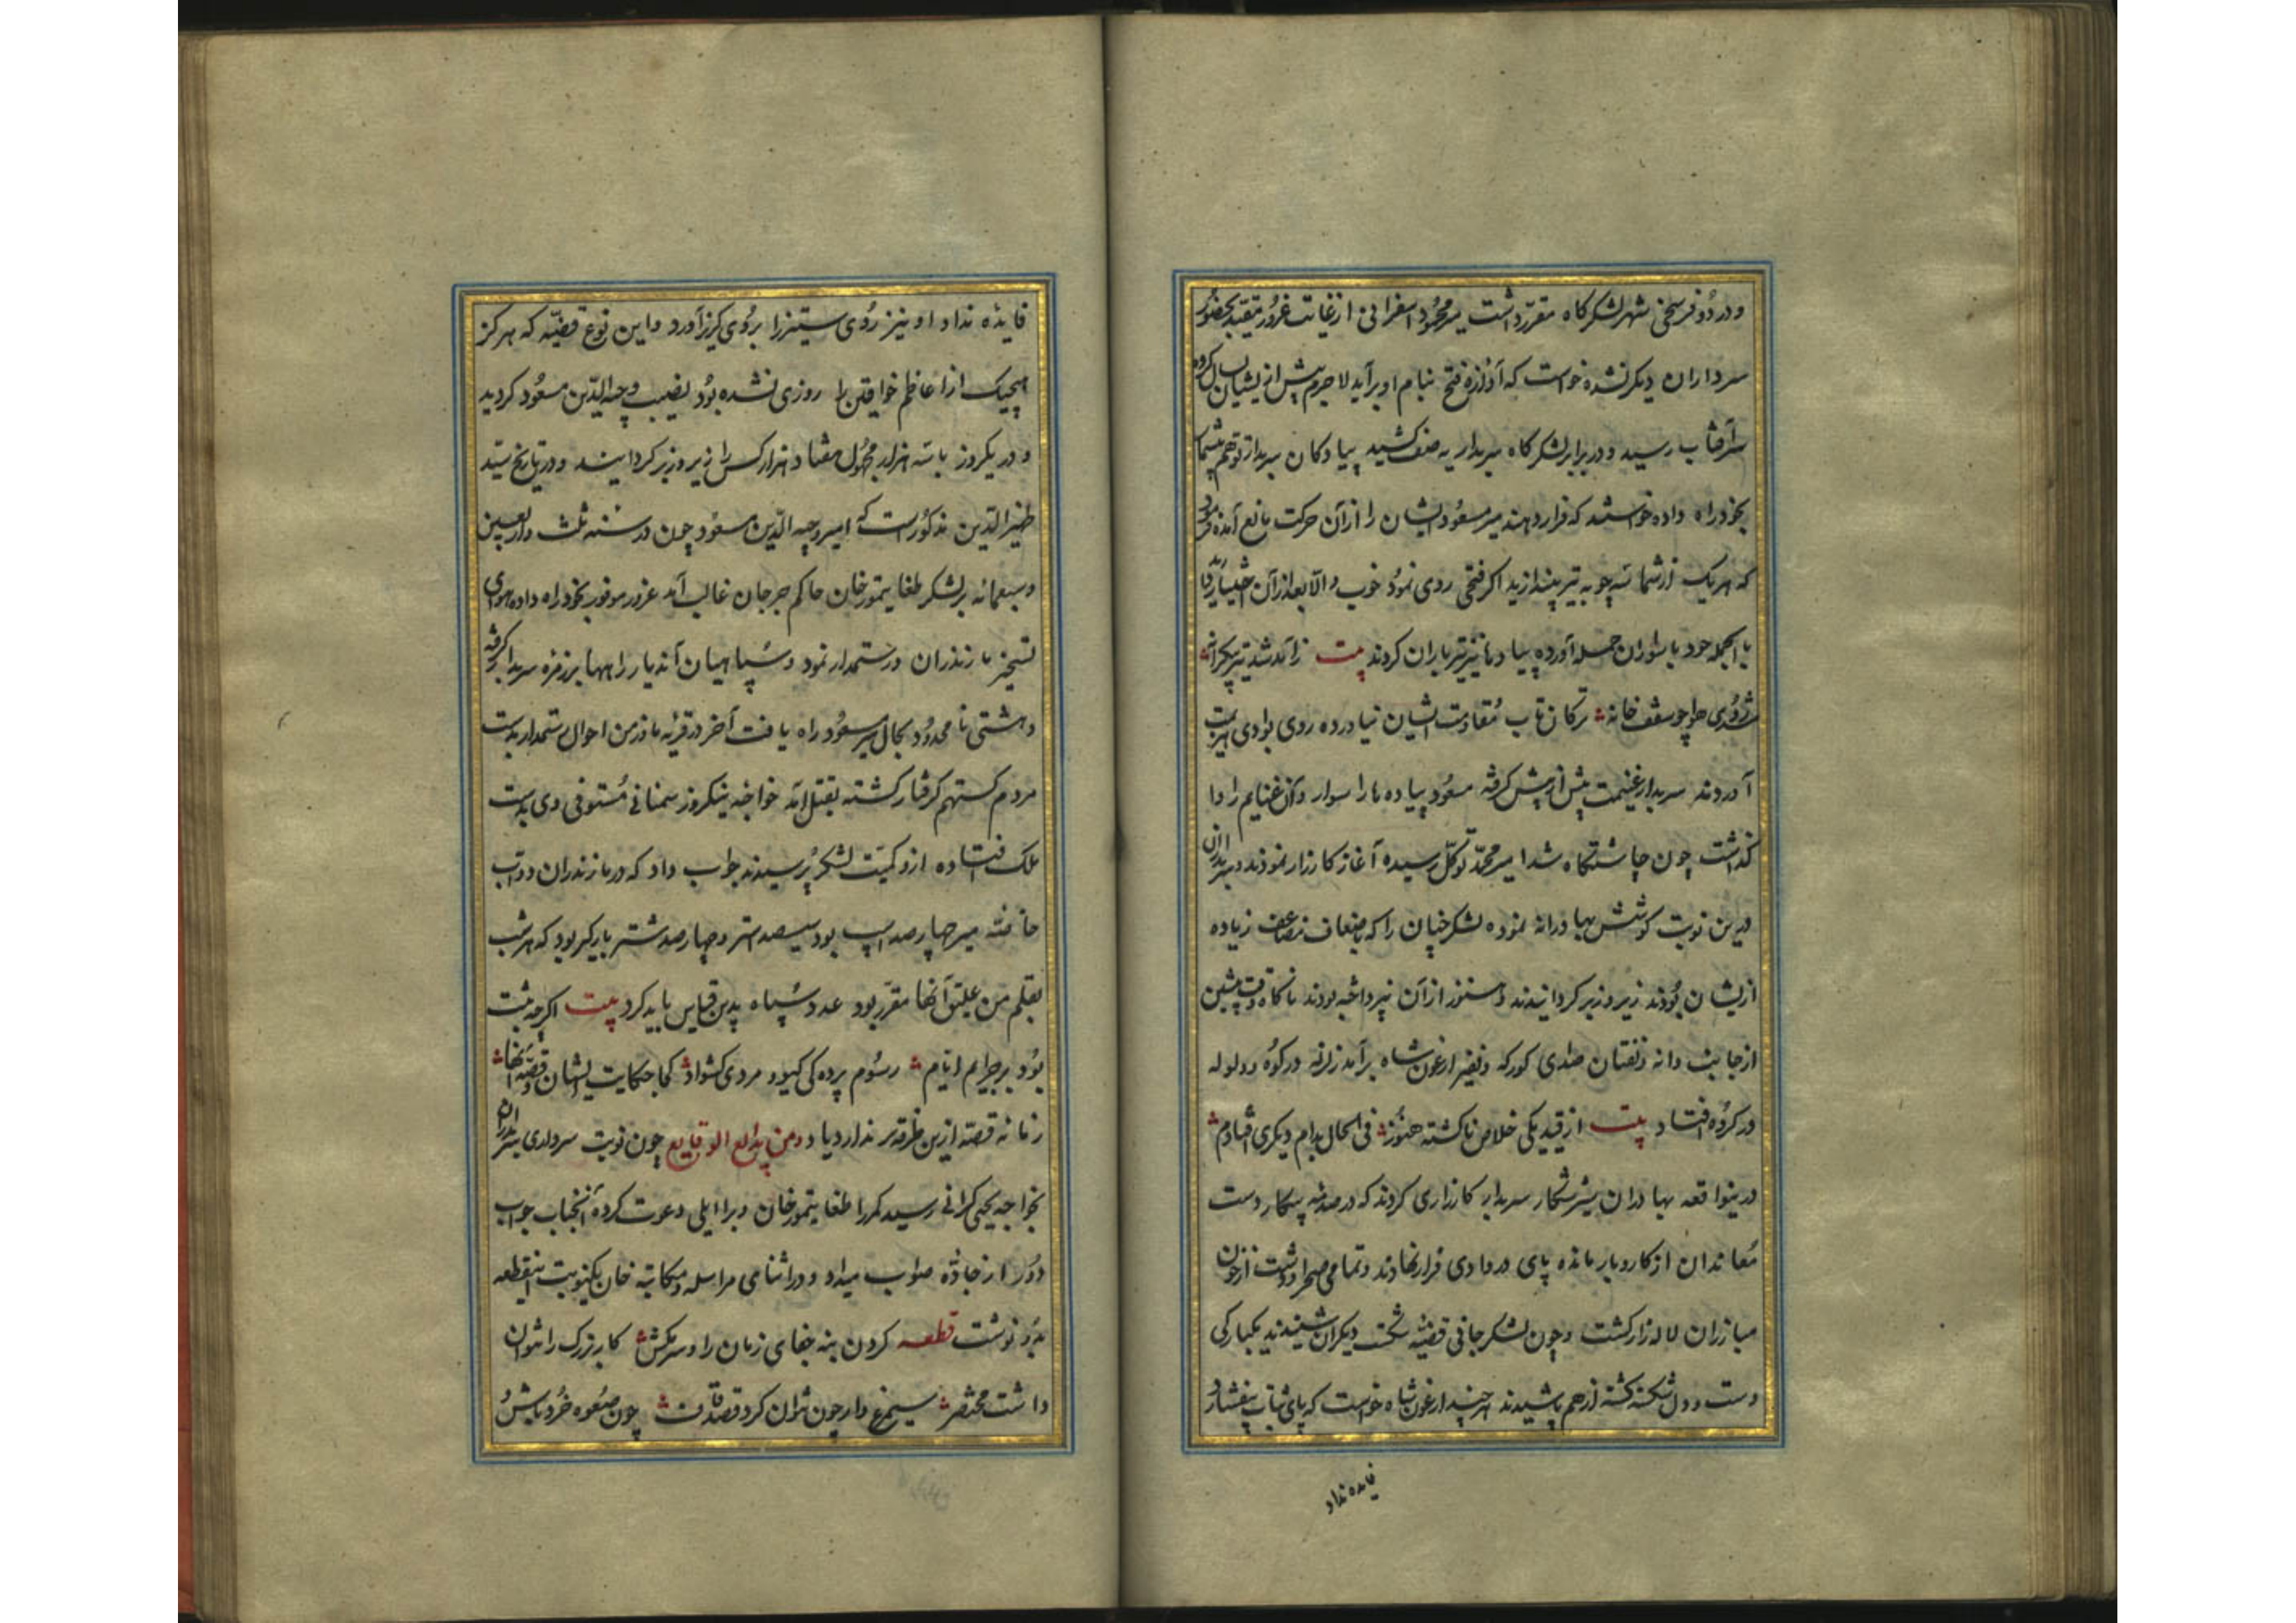 و در دو فرسخی شهر لشکرگاه مقرر داشت میر محمود اسفراینی از غایت غرور مقید بحضور
سرداران دیکر نشده خواست که آوازه فتح بنام او برآید لاجرم پیش از ایشان
سر آفتاب رسید و در برابر لشکرگاه سربداریه صف کشید پیادکان سربدار توهم
بخود راه داده خواستند که فرار دهند میر مسعود ایشان را از آن حرکت مانع آمده فرمود
که هر یک از شما سه چوبه تیر بیندازید اکر فتحی روی نمود خوب و الا بعد از آن اختیار دارید
با الجمله خود با سواران حمله آورده پیادها نیز تیر باران کردند بیت ز آمد شد تیر بیکرانه
شد روی هوا چو سقف خانه ترکان تاب مقاومت ایشان نیاورده روی بوادی هزیمت
آوردند سربدار غنیمت بیش از پیش کرفته مسعود پیاده ها را سوار و آن غنایم را وا
کذاشت چون چاشتکاه شد امیر محمد توکل رسیده آغاز کارزار نمودند و سربداران
درین نوبت کوشش بهادرانه نموده لشکر خپان را که باضعاف مضاعف زیاده
ازیشان بودند زیر و زبر کردانیدند و هنوز از آن نپرداخته بودند ناکاه وقت پیشین
از جانب دانه و نفتان صدای کورکه و نفیر ارغون شاه برآمد زلزله در کوه و ولوله
در کروه افتاد بیت از قید یکی خلاص ناکشته هنوز فی الحال بدام دیکری افتادم
درینواقعه بهادران شیر شکار سربدار کارزاری کردند که در صدمه پیکار دست
معاندان از کاروبار مانده پای در وادی فرار نهادند و تمامی صحرا و دشت از خون
مبارزان لاله زار کشت و چون لشکر جانی قضیه شکست دیکران شنیدند یکبارکی
دست و دل شکسته کشته از هم پاشیدند هر چند ارغون شاه خواست که پای ثبات بیفشارد
فایده نداد
فایده نداد او نیز روی ستیز را بروی کریز آورد و این نوع قضیه که هرکز
هیچیک از اعاظم خواقین را روزی نشده بود نصیب وجیه الدین مسعود کردید
و در یکروز با سه هزار مجهول هفتاد هزار کس را زیر و زبر کردانیدند و در تاریخ سید
ظهیر الدین مذکور است که امیر وجیه الدین مسعود چون در سنه ثلث و اربعین
و سبعمائه بر لشکر طغا یتمور خان حاکم جرجان غالب آمد غرور موفور بخود راه داده هوای
تسخیر مازندران و رستمدار نمود و سپاهیان آندیار راهها بر زمره سربدار کرفته
دهشتی نامحدود بحال میر مسعود راه یافت آخر در قریه ماذ من احوال رستمدار بدست
مردم کستهم کرفتار کشته بقتل آمد خواجه نیکروز سمنانی مستوفی وی بدست
ملک افتاده ازو کمیت لشکر پرسیدند جواب داد که در مازندران دواب
خاصه میر چهارصد اسپ بود سیصد استر و چهارصد شتر بارکیر بود که هر شب
بقلم من علیق آنها مقرر بود عدد سپاه بدین قیاس باید کرد بیت اکرچه ثبت
بود بر جراید ایام رسوم پرده کی کیو و مردی کشواد کجا حکایت ایشان و قصه آنها
زمانه قصه ازین طرفه تر ندارد یاد و من بدایع الوقایع چون نوبت سرداری سربداران
بخواجه یحیی کرانی رسید مکررا طغا یتمور خان ویرا ایلی دعوت کرده آنجناب جواب
دور از جاده صواب میداد و در اثنای مراسله و مکاتبه خان یکنوبت اینقطعه
بدو نوشت قطعه کردن بنه جفای زمان را و سر مکش کار بزرک را نتوان
داشت مختصر سیمرغ وار چون نتوان کرد قصد قاف چون صعوه خرد باش